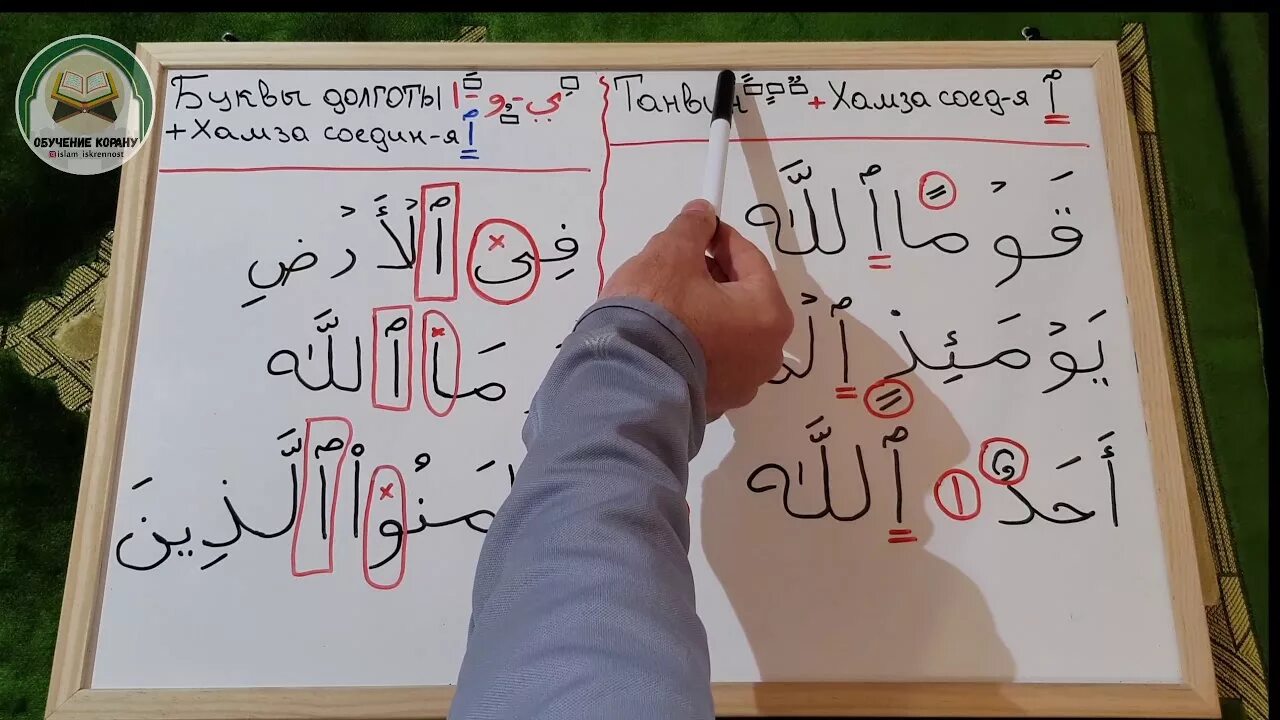 ОБУЧЕНИЕ КОРАНУ
@islam_iskrennost
Буквы долготы ـَا - ـُو - ـِي
+ Хамза соедин-я ٱ
فِى ٱلْأَرْضِ
مَا ٱللَّه
ٱلَّذِينَ
+ Хамза соед-я ٱ
قَوْمًا ٱللَّه
يَوْمَئِذٍ
أَحَدٌ ١ ٱللَّه